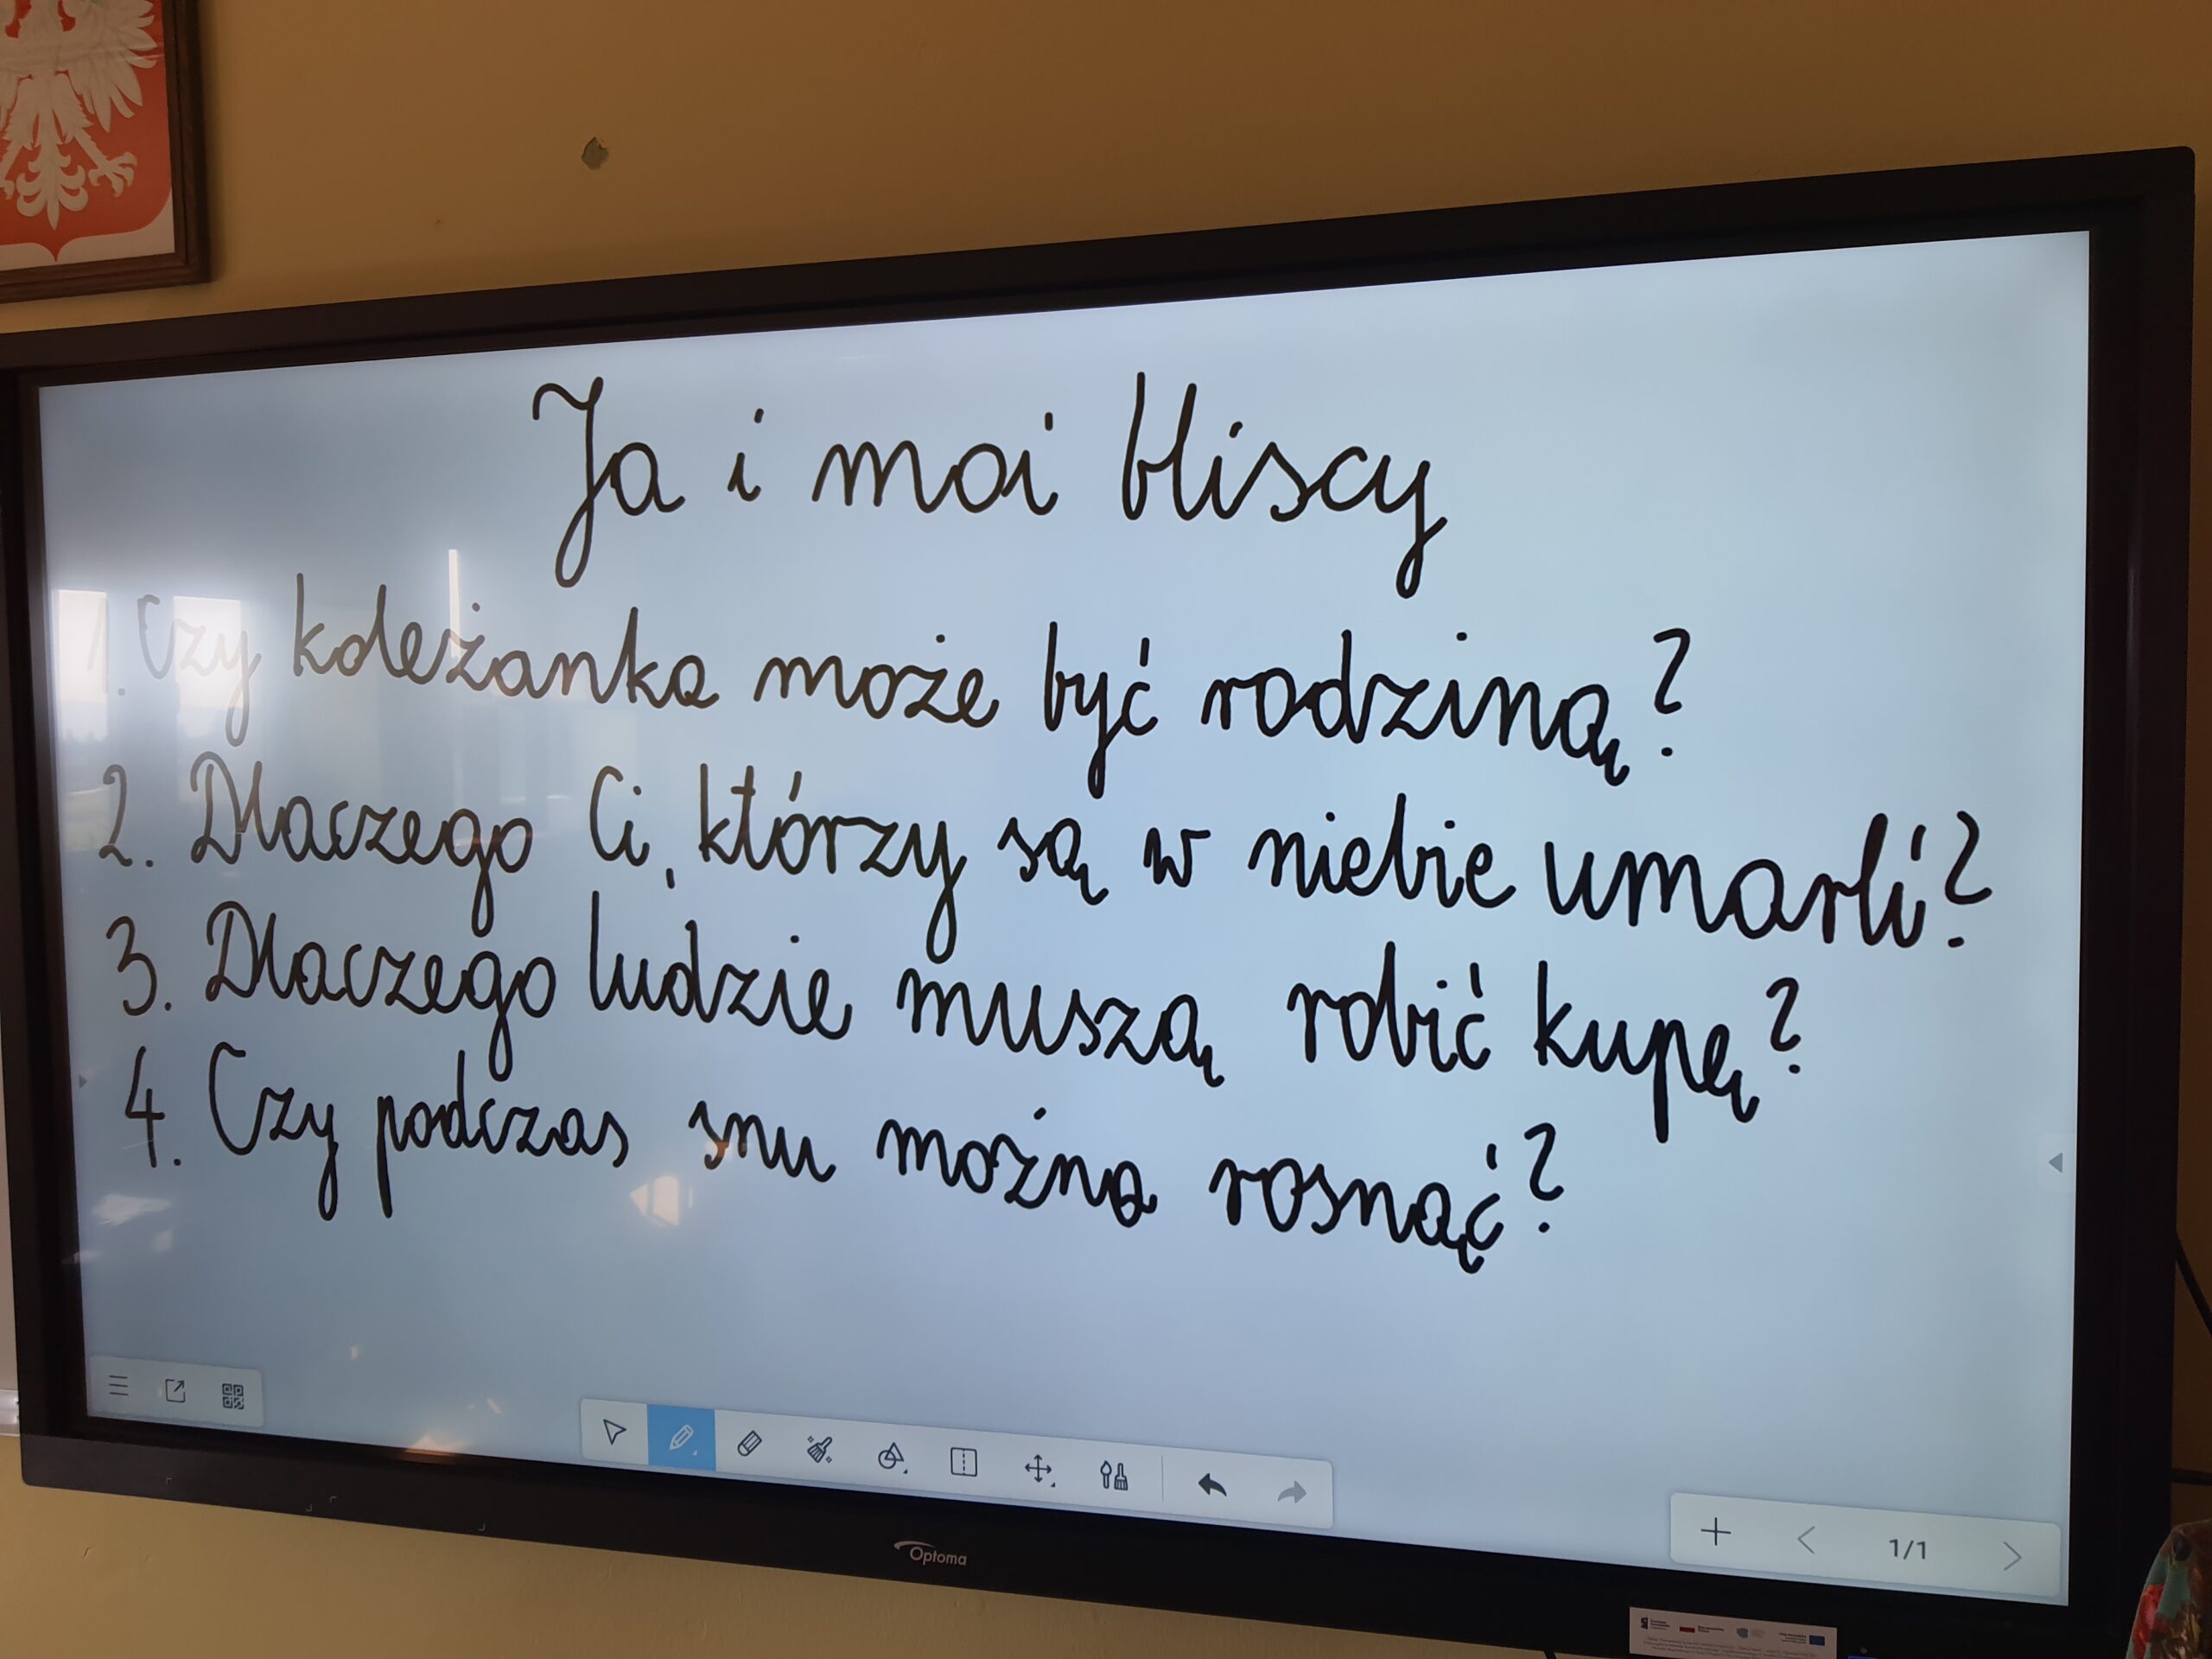 Ja i moi bliscy
1. Czy koleżanka może być rodziną?
2. Dlaczego Ci, którzy są w niebie umarli?
3. Dlaczego ludzie muszą robić kupę?
4. Czy podczas snu można rosnąć?
1/1
Optoma